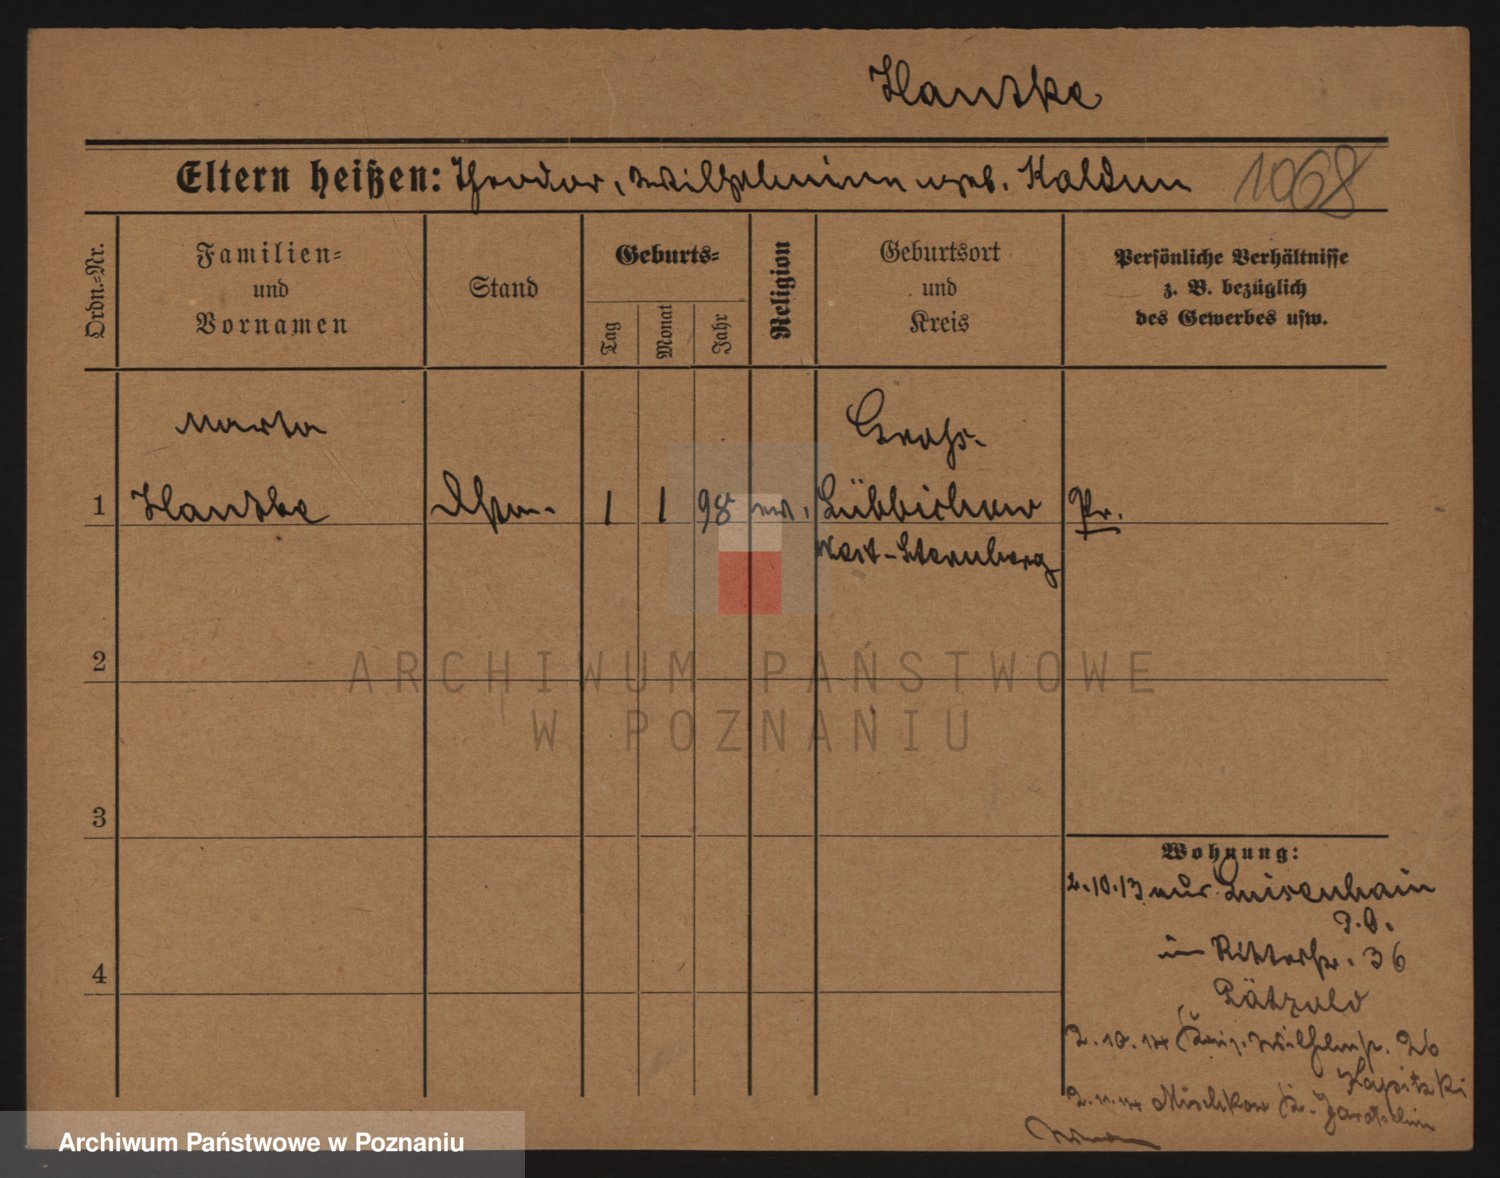 Hanske
Eltern heißen: Theodor, Wilhelmine geb. Kaldun
1068
Ordn.-Nr.
Familien-
und
Vornamen
Stand
Geburts-
Tag
Monat
Jahr
Religion
Geburtsort
und
Kreis
Persönliche Verhältnisse
z. B. bezüglich
des Gewerbes usw.
Marta
Gross-
1 Hanske 1 1 98 ev. Lübbichow Pr.
West-Sternberg
2
ARCHIWUM PAŃSTWOWE
W POZNANIU
3
Wohnung:
2.10.13 aus Luisenhain
P.O.
in Ritterstr. 36
Pätzold
4
2.10.14 Wilhelmstr. 26
Kapitzki
Kr. Jarotschin
Archiwum Państwowe w Poznaniu